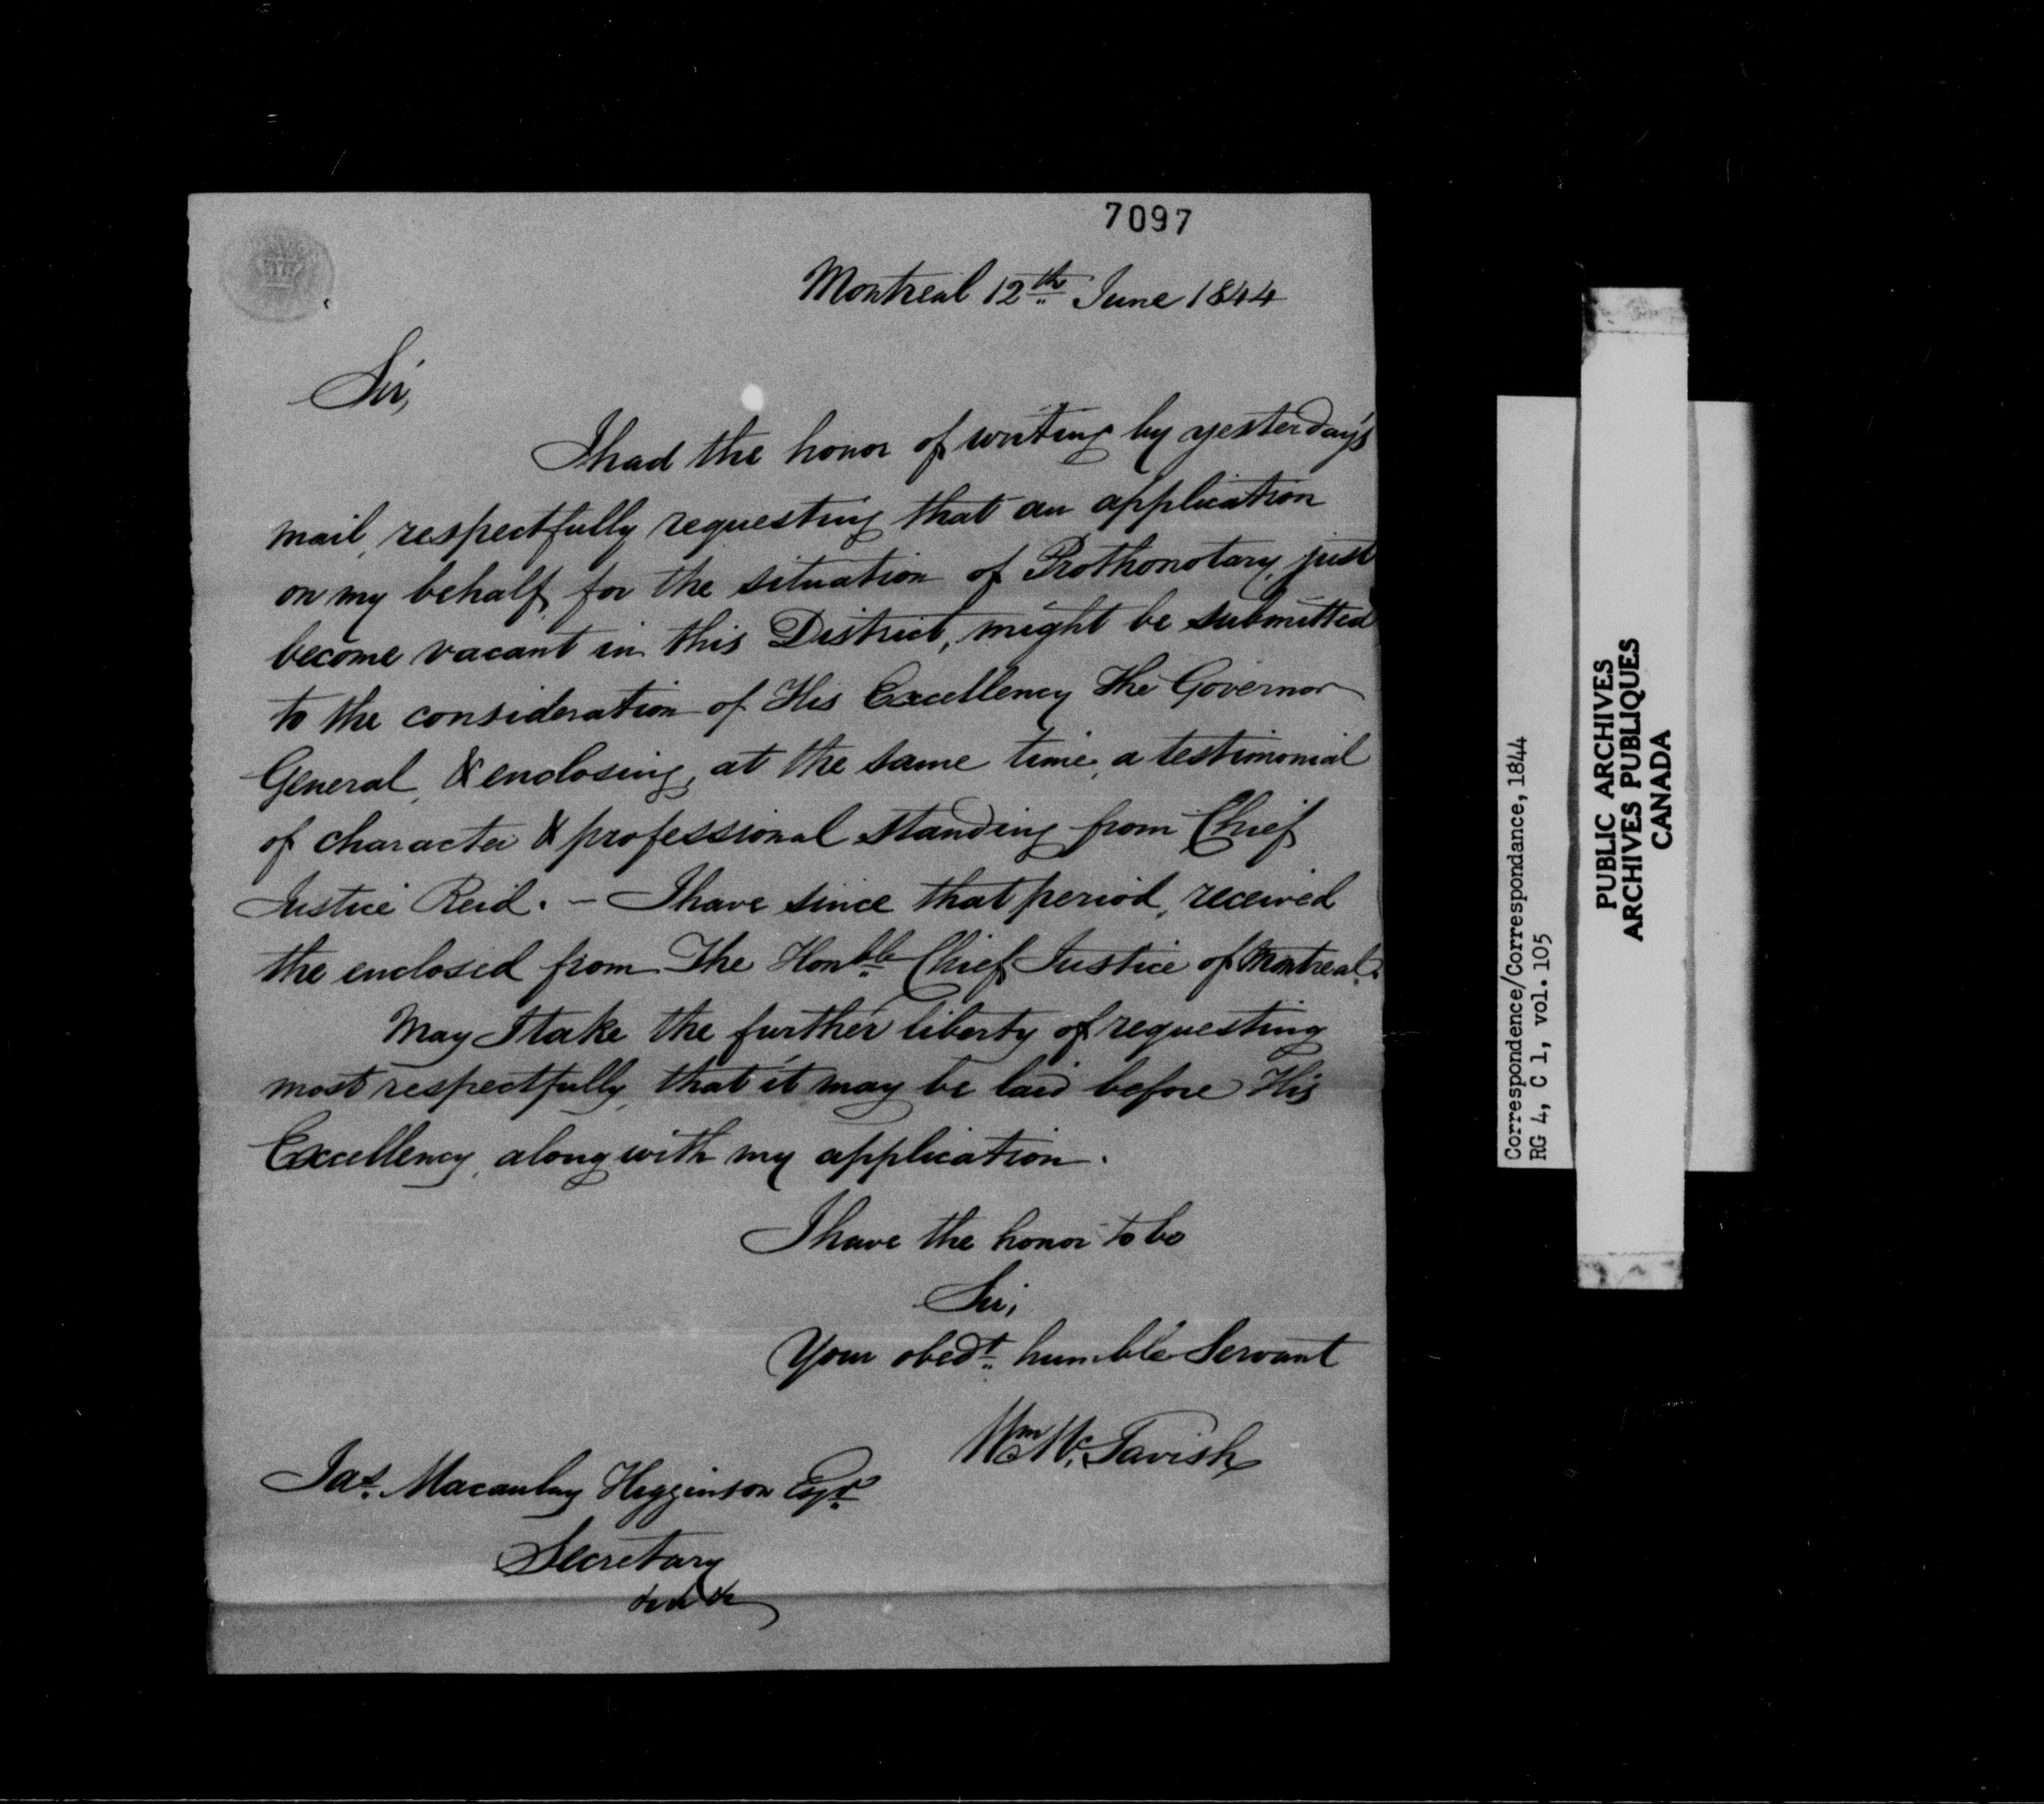 7097
Montreal 12th June 1844
Sir,
I had the honor of writing by yesterday's
mail, respectfully requesting that an application
on my behalf, for the situation of Prothonotary, just
become vacant in this District, might be submitted
to the consideration of His Excellency The Governor
General, & enclosing, at the same time, a testimonial
of character & professional standing from Chief
Justice Reid. – I have since that period, received
the enclosed from The Honble Chief Justice of Montreal.
May I take the further liberty of requesting
most respectfully, that it may be laid before His
Excellency, along with my application.
I have the honor to be
Sir,
Your obedt humble Servant
Wm McTavish
Jas. Macaulay Higginson Esqr
Secretary
Correspondence/Correspondance, 1844
RG 4, C 1, vol. 105
PUBLIC ARCHIVES
ARCHIVES PUBLIQUES
CANADA